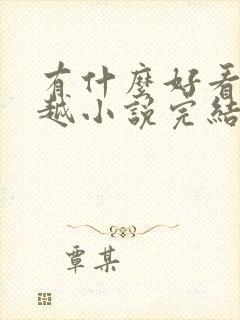 有什麼好看
越小說完結
覃某